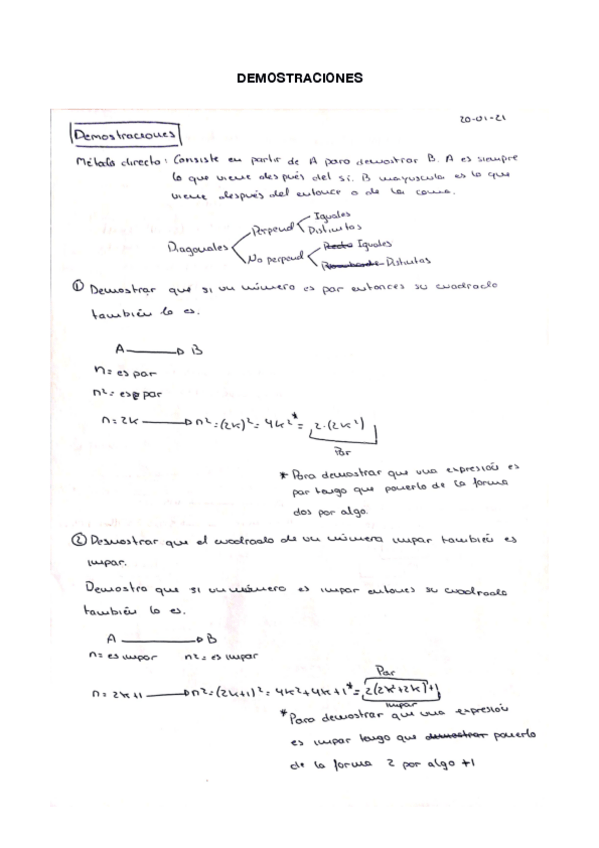 DEMOSTRACIONES
20-01-21
Demostraciones
Método directo: Consiste en partir de A para demostrar B. A es siempre
lo que viene después del si. B mayuscula es lo que
viene después del entonce o de la coma.
Iguales
Perpend
Distintos
Diagonales
Recto Iguales
No perpend
Distintas
① Demostrar que si un número es par entonces su cuadrado
también lo es.
A → B
n = es par
n² = es par
n = 2k → n² = (2k)² = 4k² *= 2·(2k²)
Par
* Para demostrar que una expresión es
par tengo que ponerlo de la forma
dos por algo.
② Desmostrar que el cuadrado de un número impar también es
impar.
Demostra que si un número es impar entones su cuadrado
también lo es.
A → B
n = es impar n² = es impar
Par
n = 2k+1 → n² = (2k+1)² = 4k²+4k+1 *= 2(2k²+2k)+1
impar
* Para demostrar que una expresión
es impar tengo que demostrar ponerlo
de la forma 2 por algo +1